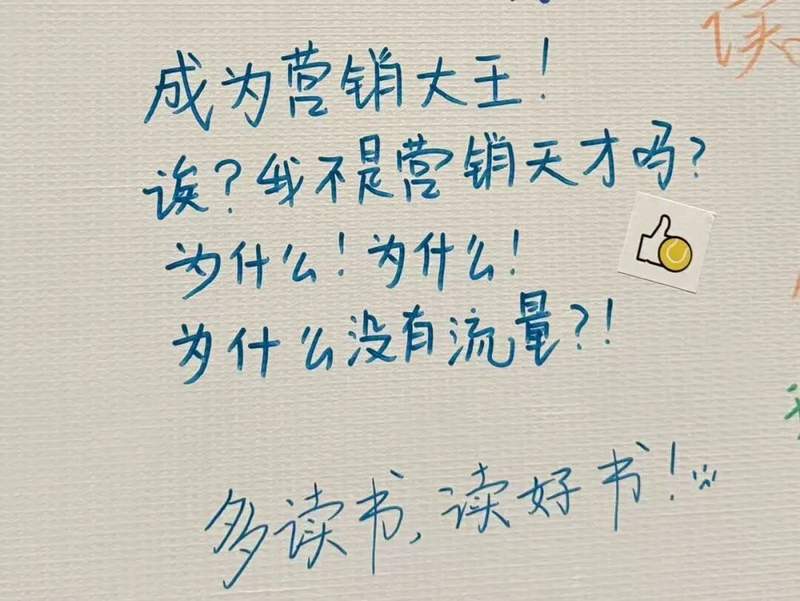 成为营销大王！
诶？我不是营销天才吗？
为什么！为什么！
为什么没有流量？！
多读书，读好书！